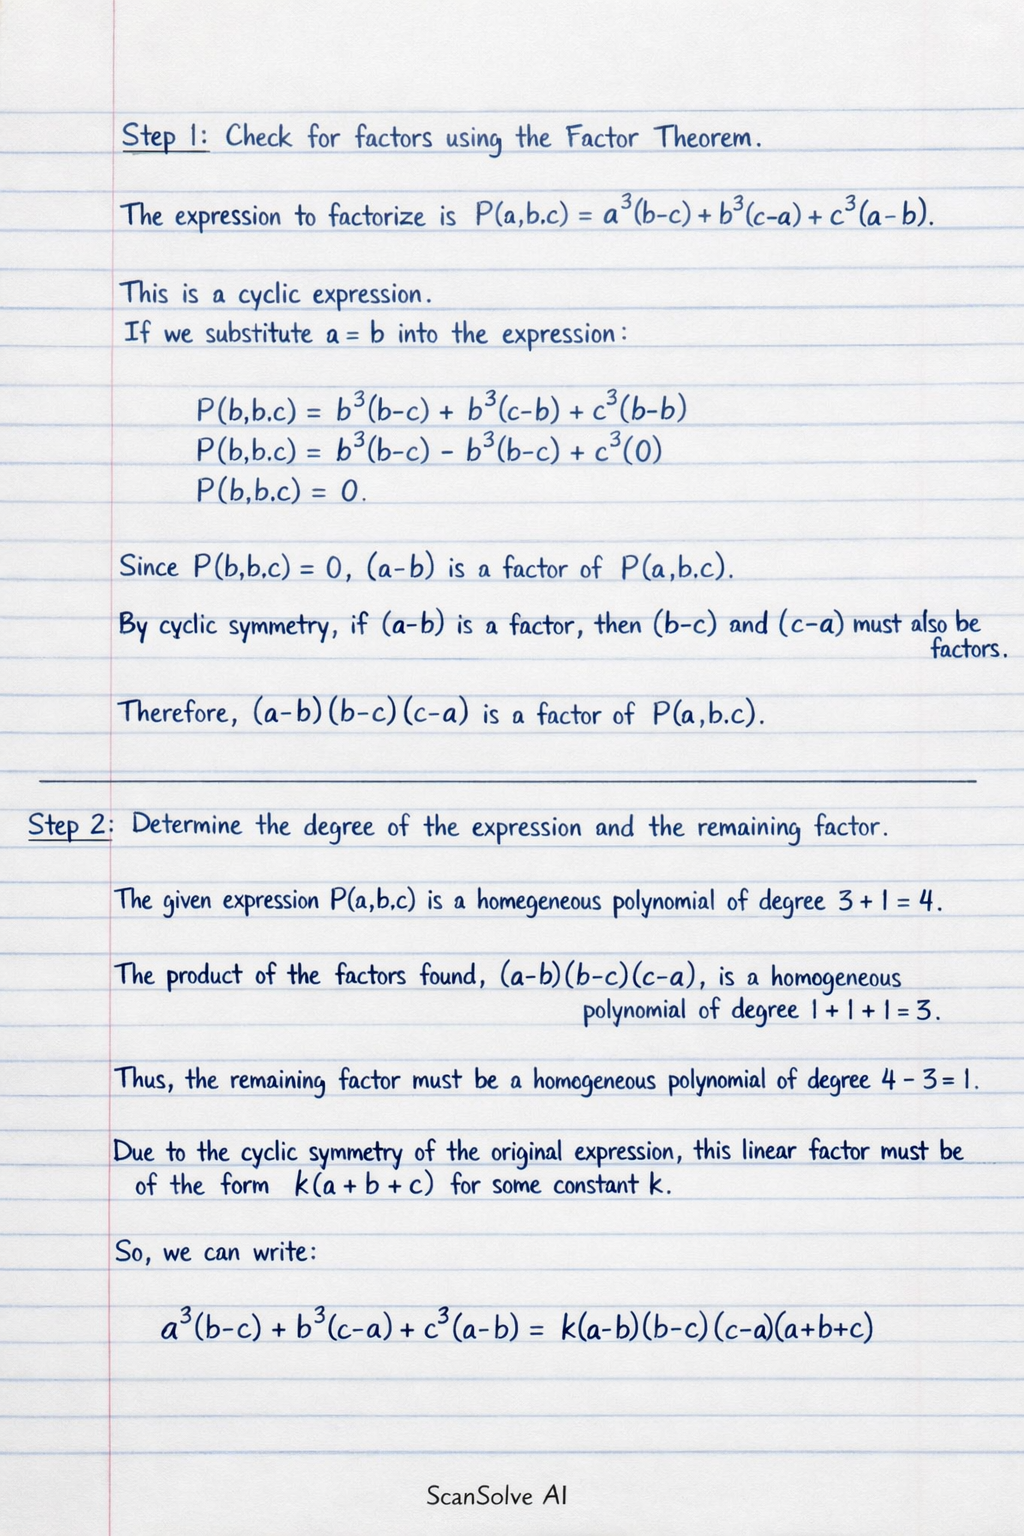 Step 1: Check for factors using the Factor Theorem.
The expression to factorize is P(a,b.c) = a³(b-c) + b³(c-a) + c³(a-b).
This is a cyclic expression.
If we substitute a = b into the expression:
P(b,b.c) = b³(b-c) + b³(c-b) + c³(b-b)
P(b,b.c) = b³(b-c) - b³(b-c) + c³(0)
P(b,b.c) = 0.
Since P(b,b.c) = 0, (a-b) is a factor of P(a,b.c).
By cyclic symmetry, if (a-b) is a factor, then (b-c) and (c-a) must also be
factors.
Therefore, (a-b)(b-c)(c-a) is a factor of P(a,b.c).
Step 2: Determine the degree of the expression and the remaining factor.
The given expression P(a,b,c) is a homegeneous polynomial of degree 3 + 1 = 4.
The product of the factors found, (a-b)(b-c)(c-a), is a homogeneous
polynomial of degree 1 + 1 + 1 = 3.
Thus, the remaining factor must be a homogeneous polynomial of degree 4 - 3 = 1.
Due to the cyclic symmetry of the original expression, this linear factor must be
of the form k(a + b + c) for some constant k.
So, we can write:
a³(b-c) + b³(c-a) + c³(a-b) = k(a-b)(b-c)(c-a)(a+b+c)
ScanSolve AI